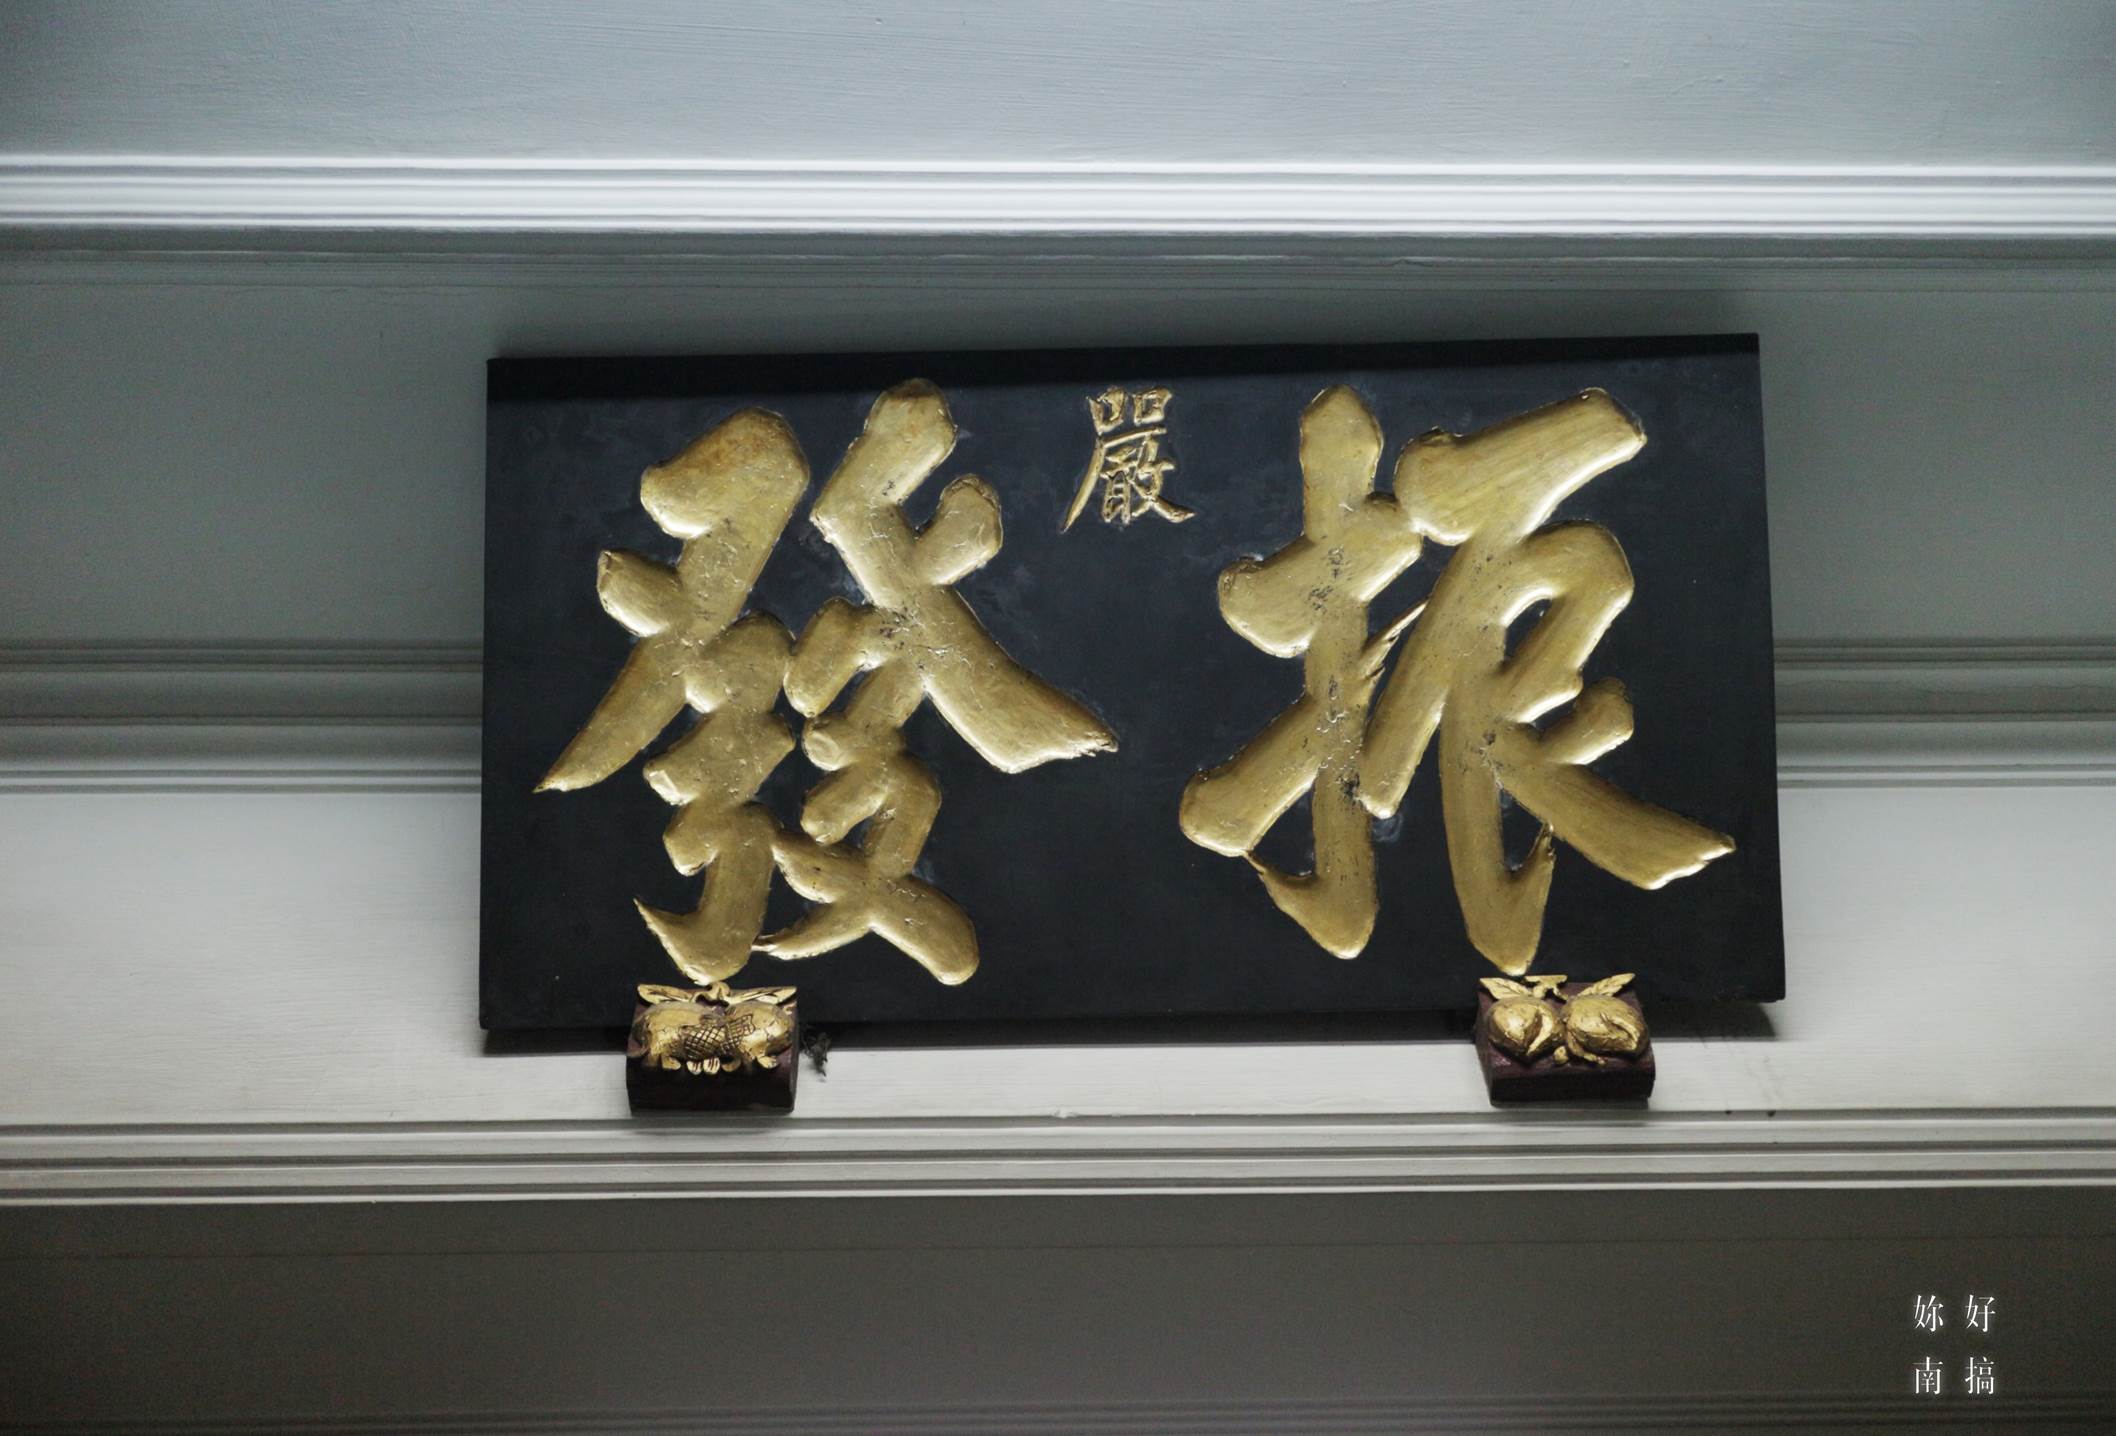 嚴
振發
妳好
南搞